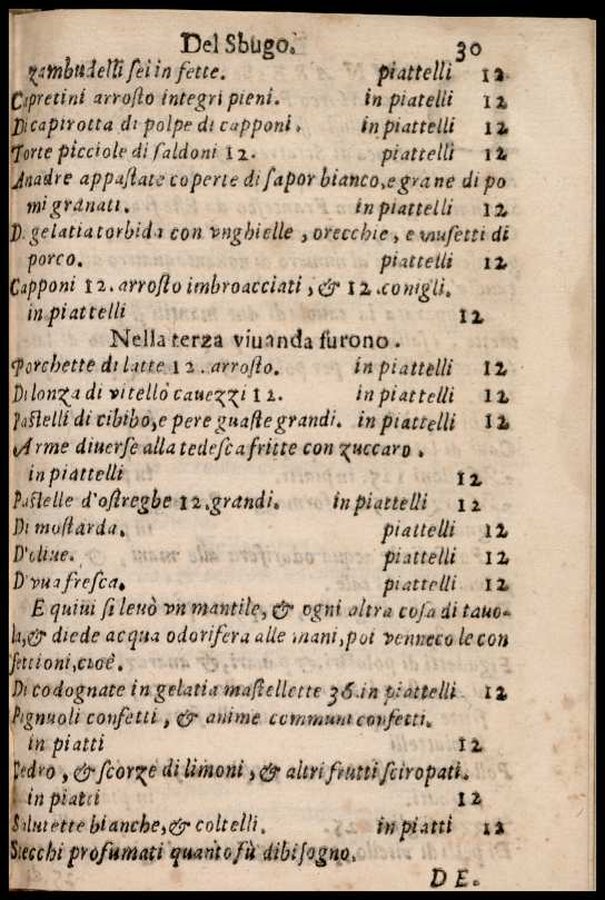 Del Sbugo. 30
zambudelli sei in fette. piattelli 12
Capretini arrosto integri pieni. in piatelli 12
Di capirotta di polpe di capponi. in piattelli 12
Torte picciole di saldoni 12. piattelli 12
Anadre appastate coperte di sapor bianco, e grane di po
mi granati. in piattelli 12
D. gelatia torbida con vnghielle, orecchie, e musetti di
porco. piattelli 12
Capponi 12. arrosto imbroacciati, & 12. conigli.
in piattelli 12
Nella terza viuanda furono.
Porchette di latte 12. arrosto. in piattelli 12
Di lonza di vitello cauezzi 12. in piattelli 12
Pastelli di cibibo, e pere guaste grandi. in piattelli 12
Arme diuerse alla tedesca fritte con zuccaro.
in piattelli 12
Pastelle d'ostreghe 12. grandi. in piattelli 12
Di mostarda. piattelli 12
D'oliue. piattelli 12
D'vua fresca. piattelli 12
E quiui si leuò vn mantile, & ogni altra cosa di tauo-
la, & diede acqua odorifera alle mani, poi venneco le con
fettioni, cioè.
Di codognate in gelatia mastellette 36. in piattelli 12
Pignuoli confetti, & anime communi confetti.
in piatti 12
Cedro, & scorze di limoni, & altri frutti sciropati.
in piatti 12
Saluiette bianche, & coltelli. in piatti 12
Stecchi profumati quanto fù dibisogno.
DE.